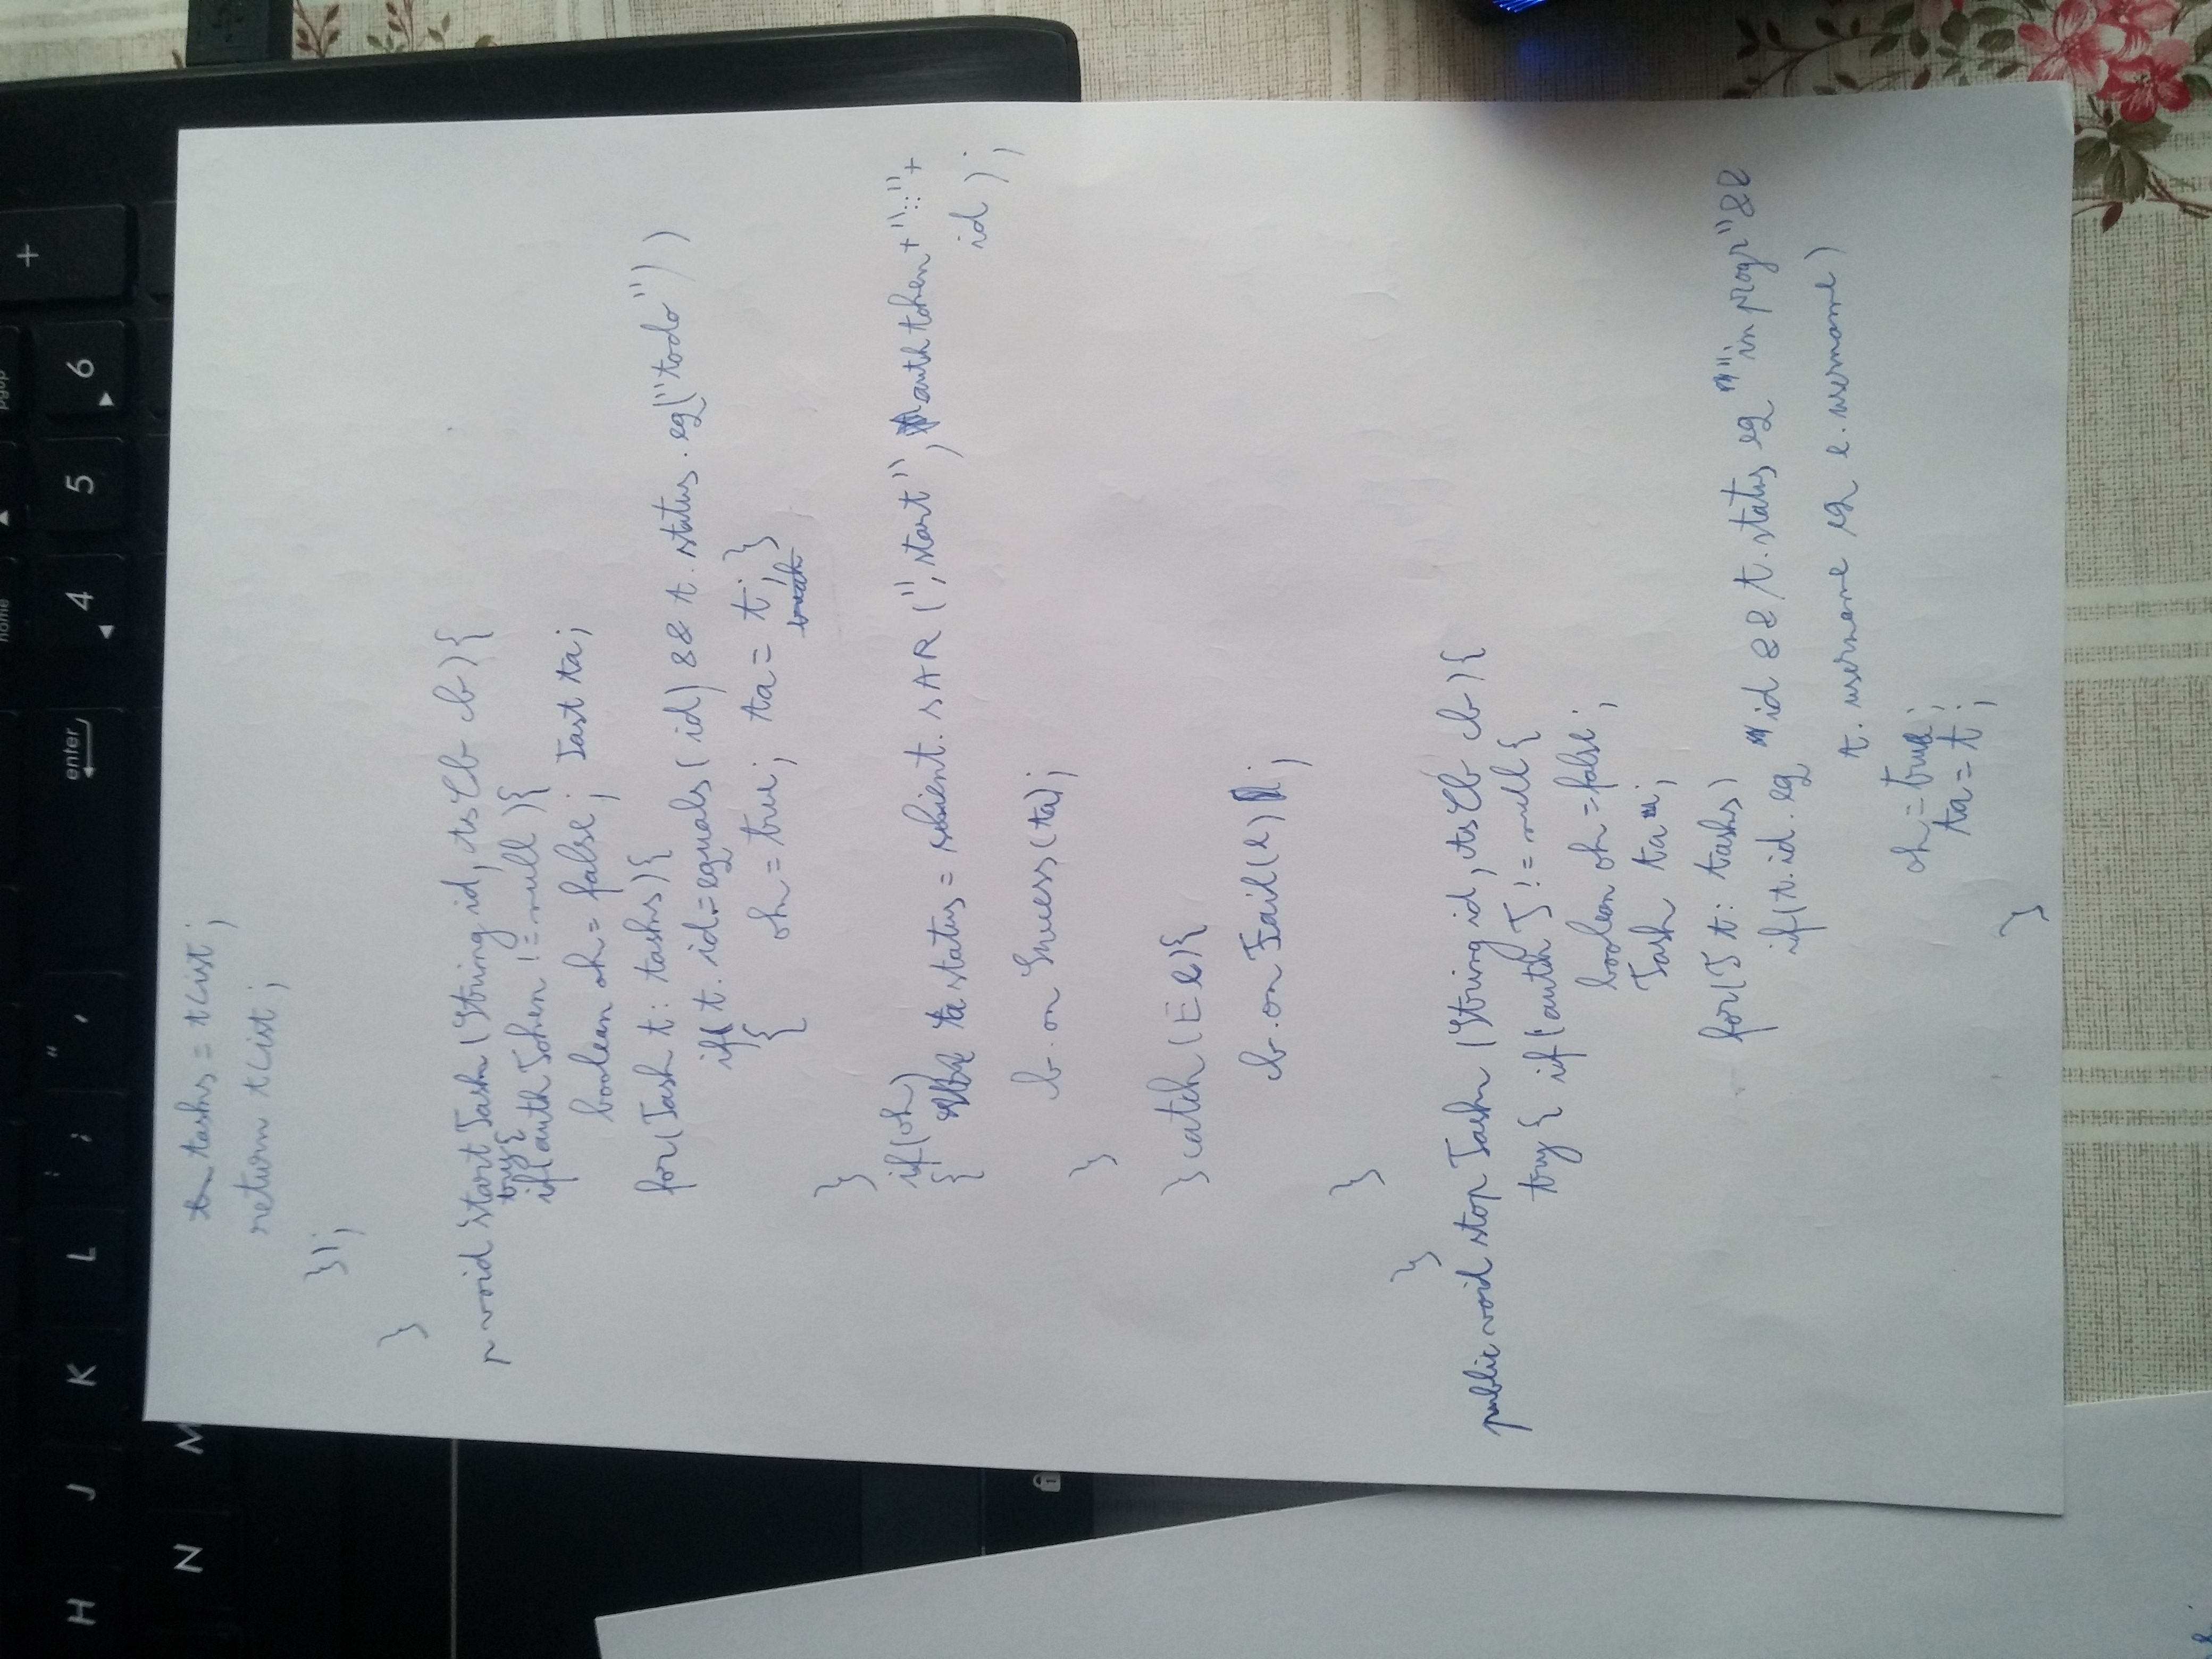 home
pgup
+
H J K L : ; " ' enter 4 5 6
N M
tasks = tList;
return tList;
});
}
p void startTask (String id, AsCb cb){
try{
if(authToken != null){
boolean ok = false; Tast ta;
for(Task t: tasks){
if( t. id.=equals(id) && t. status. eq("todo"))
{ ok = true; ta = t; }
break
}
if(ok)
{ ta status = client. sAR ("start", auth token + "::" +
id );
cb. on Success(ta);
}
}catch (E e){
cb. on Fail(e) ;
}
}
public void stop Task (String id, AsCb cb){
try { if(auth T != null{
boolean ok = false;
Task ta ;
for(T t: tasks)
if(t. id. eq id && t. status eq "in progr" &&
t. username eq e. username)
ok = true;
ta = t;
}